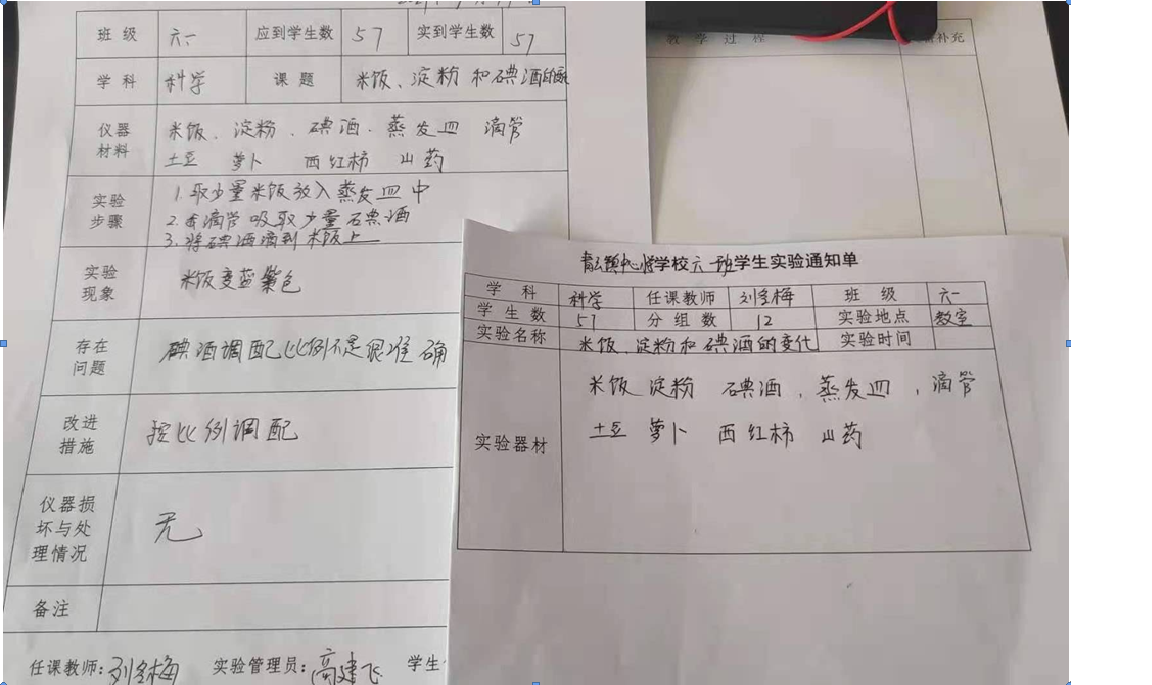 班级 六一 应到学生数 57 实到学生数 57
学科 科学 课题 米饭、淀粉和碘酒的
仪器材料 米饭、淀粉、碘酒.蒸发皿 滴管
土豆 萝卜 西红柿 山药
实验步骤 1.取少量米饭放入蒸发皿中
2.滴管吸取少量碘酒
3.将碘酒滴到米饭上
实验现象 米饭变蓝紫色
存在问题 碘酒调配比例不是很准确
改进措施 按比例调配
仪器损坏与处理情况 无
备注
任课教师:刘冬梅 实验管理员:高建飞 学生
教学过程 补充
中心学校六一班学生实验通知单
学科 科学 任课教师 刘冬梅 班级 六一
学生数 57 分组数 12 实验地点 教室
实验名称 米饭、淀粉和碘酒的变化 实验时间
实验器材 米饭 淀粉 碘酒,蒸发皿,滴管
土豆 萝卜 西红柿 山药